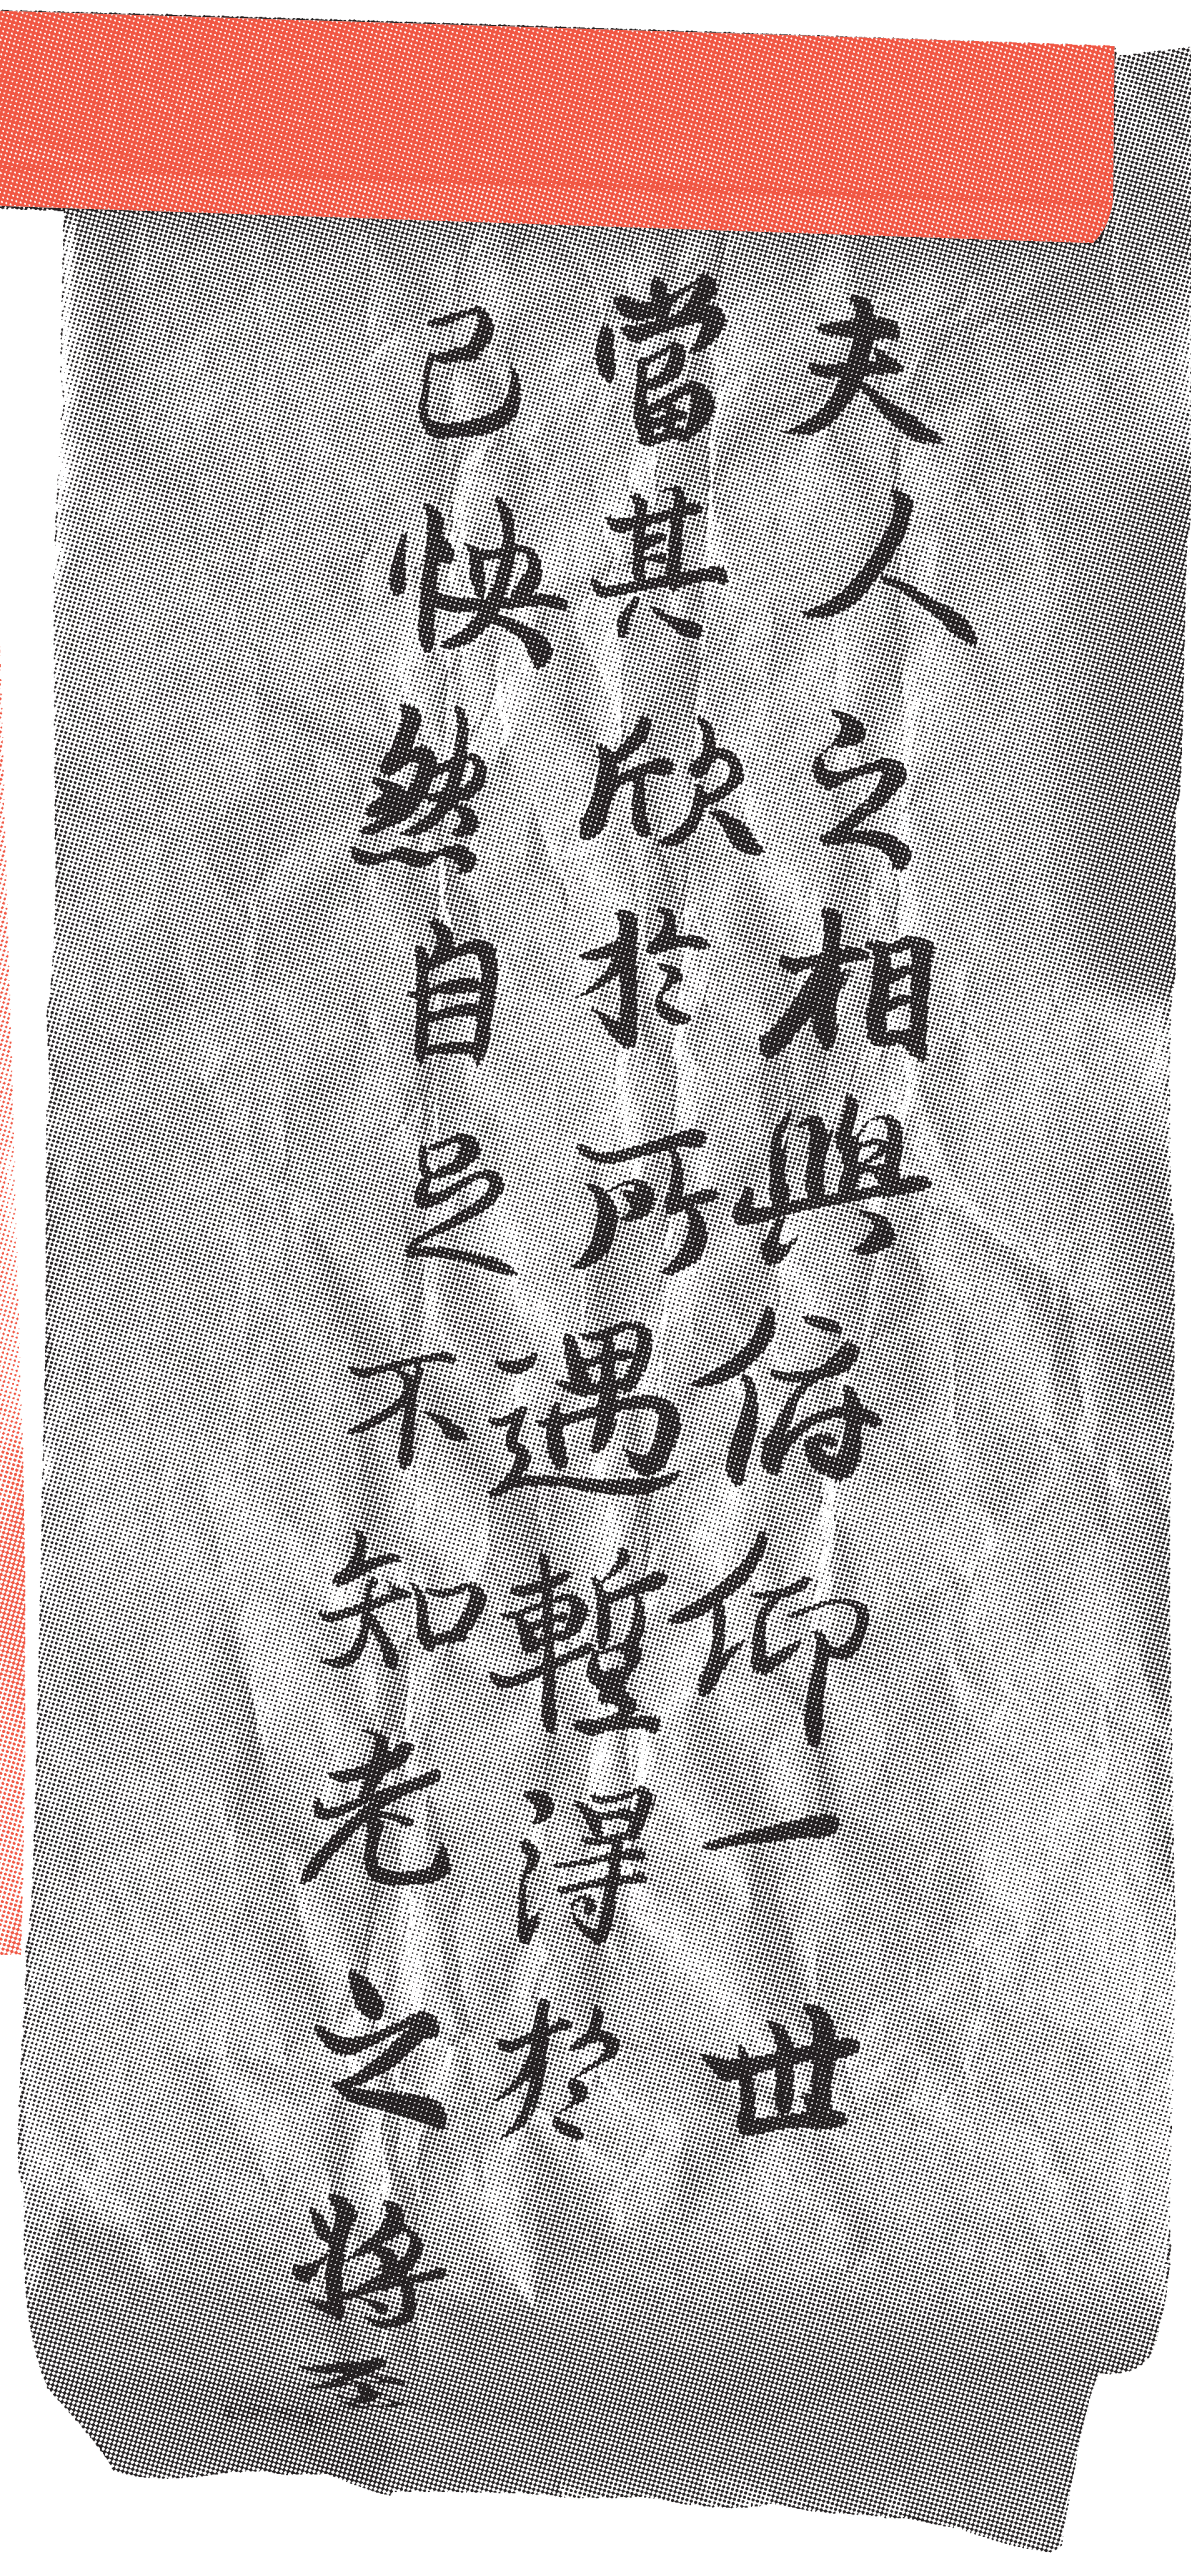 夫人之相與俯仰一世
當其欣於所遇暫得於
己怏然自足不知老之將至